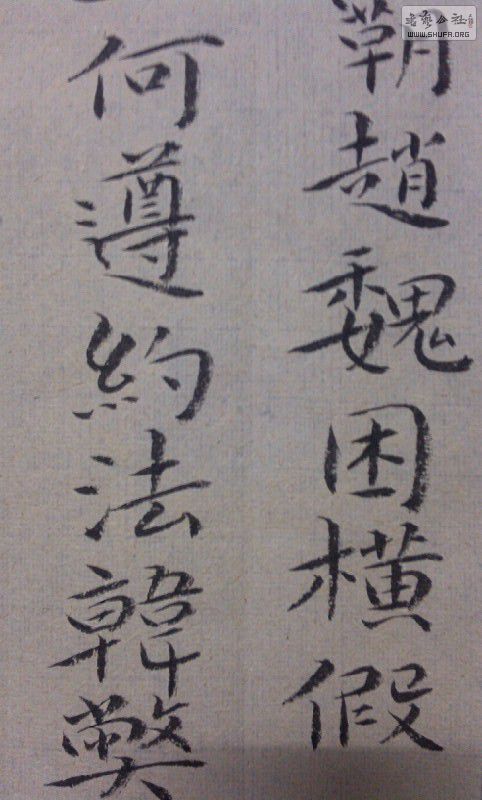 霸趙魏困横假
何遵約法韓弊
書藝公社
WWW.SHUFA.ORG